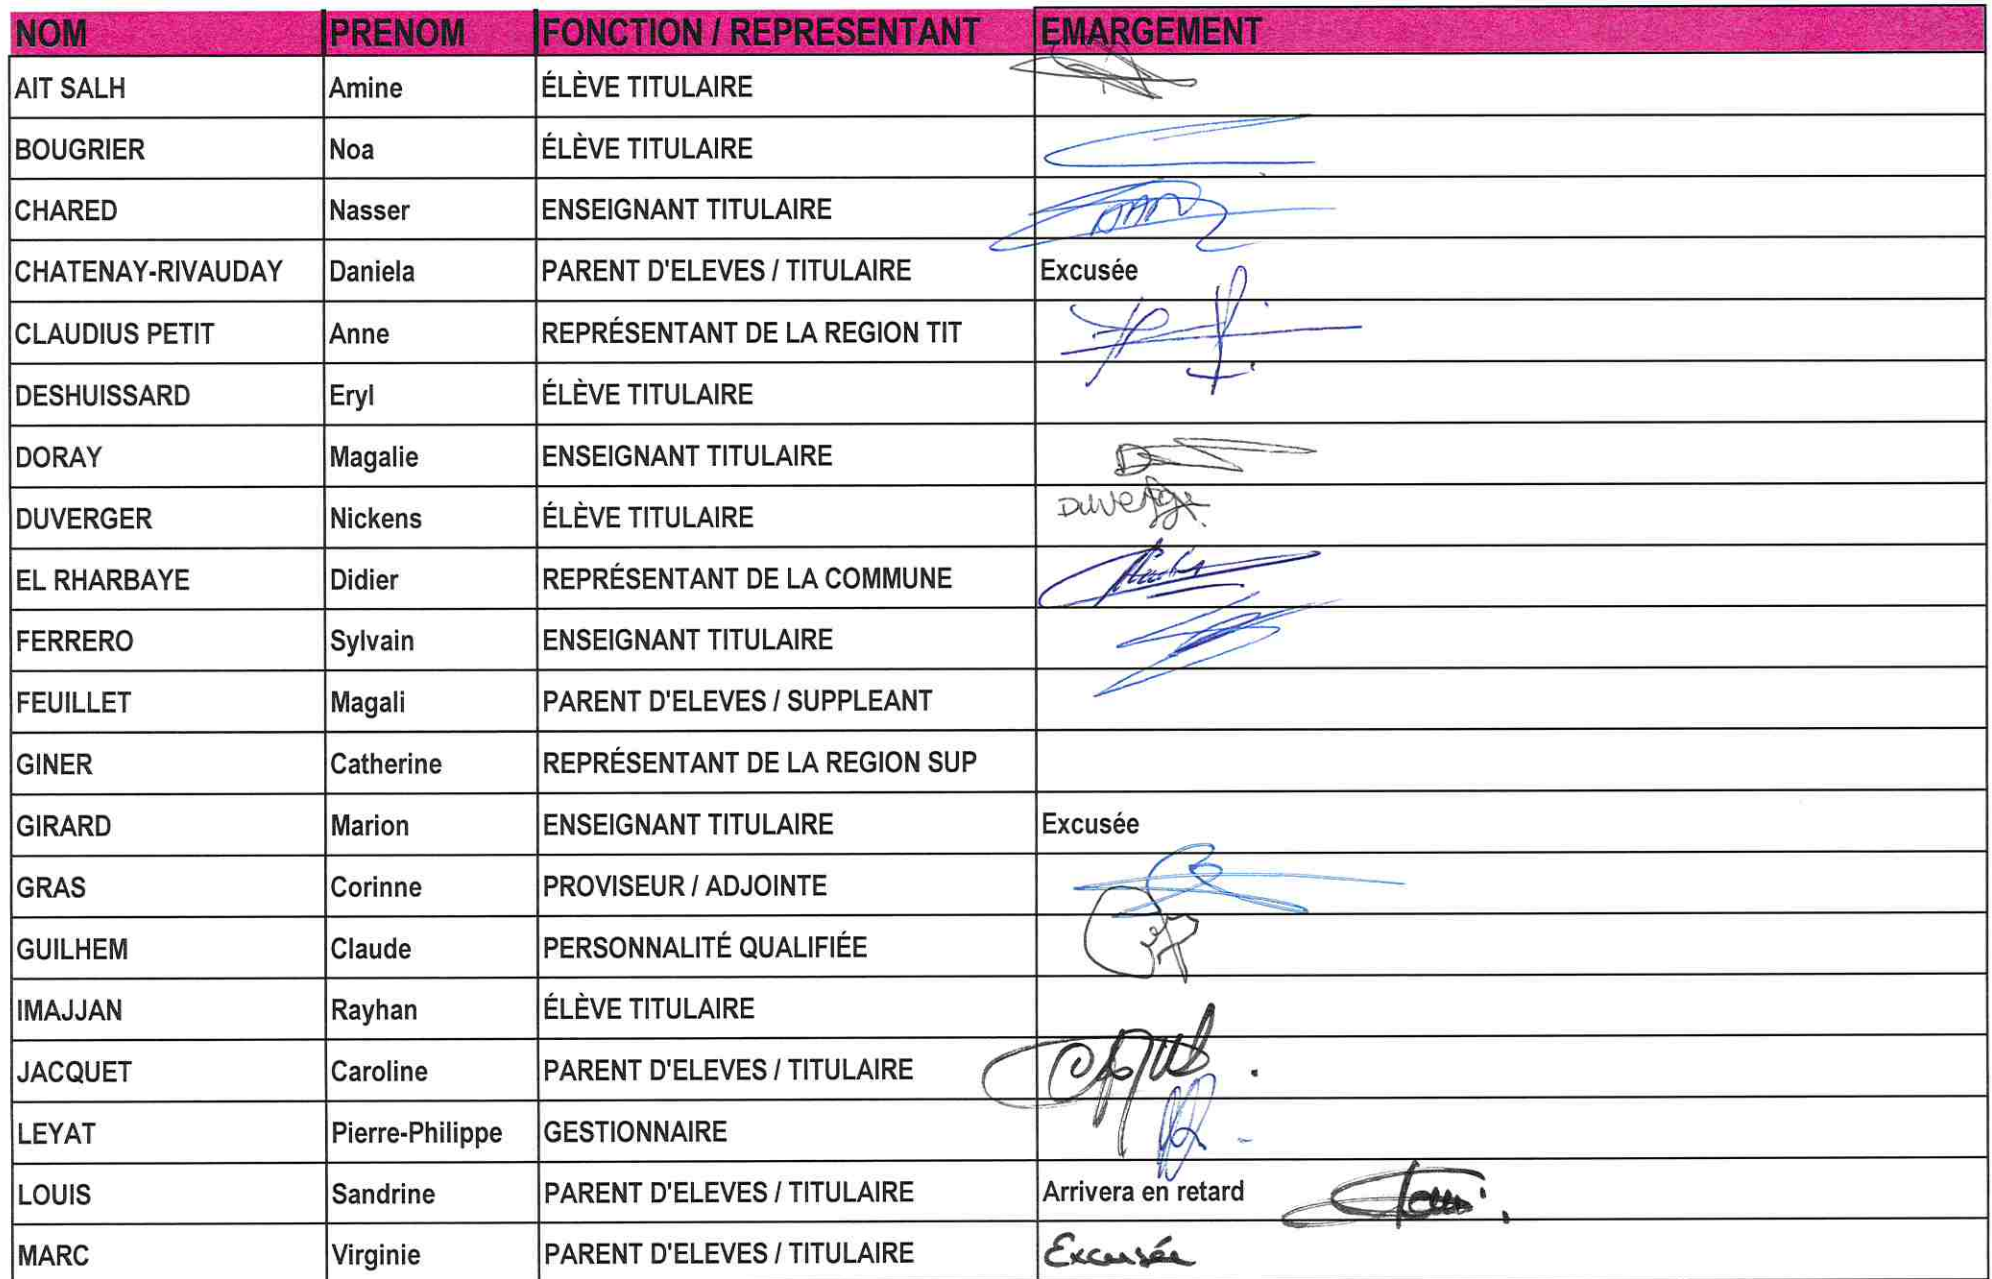 NOM PRENOM FONCTION / REPRESENTANT EMARGEMENT
AIT SALH Amine ÉLÈVE TITULAIRE
BOUGRIER Noa ÉLÈVE TITULAIRE
CHARED Nasser ENSEIGNANT TITULAIRE
CHATENAY-RIVAUDAY Daniela PARENT D'ELEVES / TITULAIRE Excusée
CLAUDIUS PETIT Anne REPRÉSENTANT DE LA REGION TIT
DESHUISSARD Eryl ÉLÈVE TITULAIRE
DORAY Magalie ENSEIGNANT TITULAIRE
DUVERGER Nickens ÉLÈVE TITULAIRE
EL RHARBAYE Didier REPRÉSENTANT DE LA COMMUNE
FERRERO Sylvain ENSEIGNANT TITULAIRE
FEUILLET Magali PARENT D'ELEVES / SUPPLEANT
GINER Catherine REPRÉSENTANT DE LA REGION SUP
GIRARD Marion ENSEIGNANT TITULAIRE Excusée
GRAS Corinne PROVISEUR / ADJOINTE
GUILHEM Claude PERSONNALITÉ QUALIFIÉE
IMAJJAN Rayhan ÉLÈVE TITULAIRE
JACQUET Caroline PARENT D'ELEVES / TITULAIRE
LEYAT Pierre-Philippe GESTIONNAIRE
LOUIS Sandrine PARENT D'ELEVES / TITULAIRE Arrivera en retard
MARC Virginie PARENT D'ELEVES / TITULAIRE Excusée